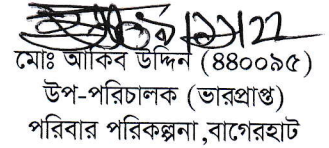 মোঃ আকিব উদ্দিন (৪৪০০৯৫)
উপ-পরিচালক (ভারপ্রাপ্ত)
পরিবার পরিকল্পনা ,বাগেরহাট